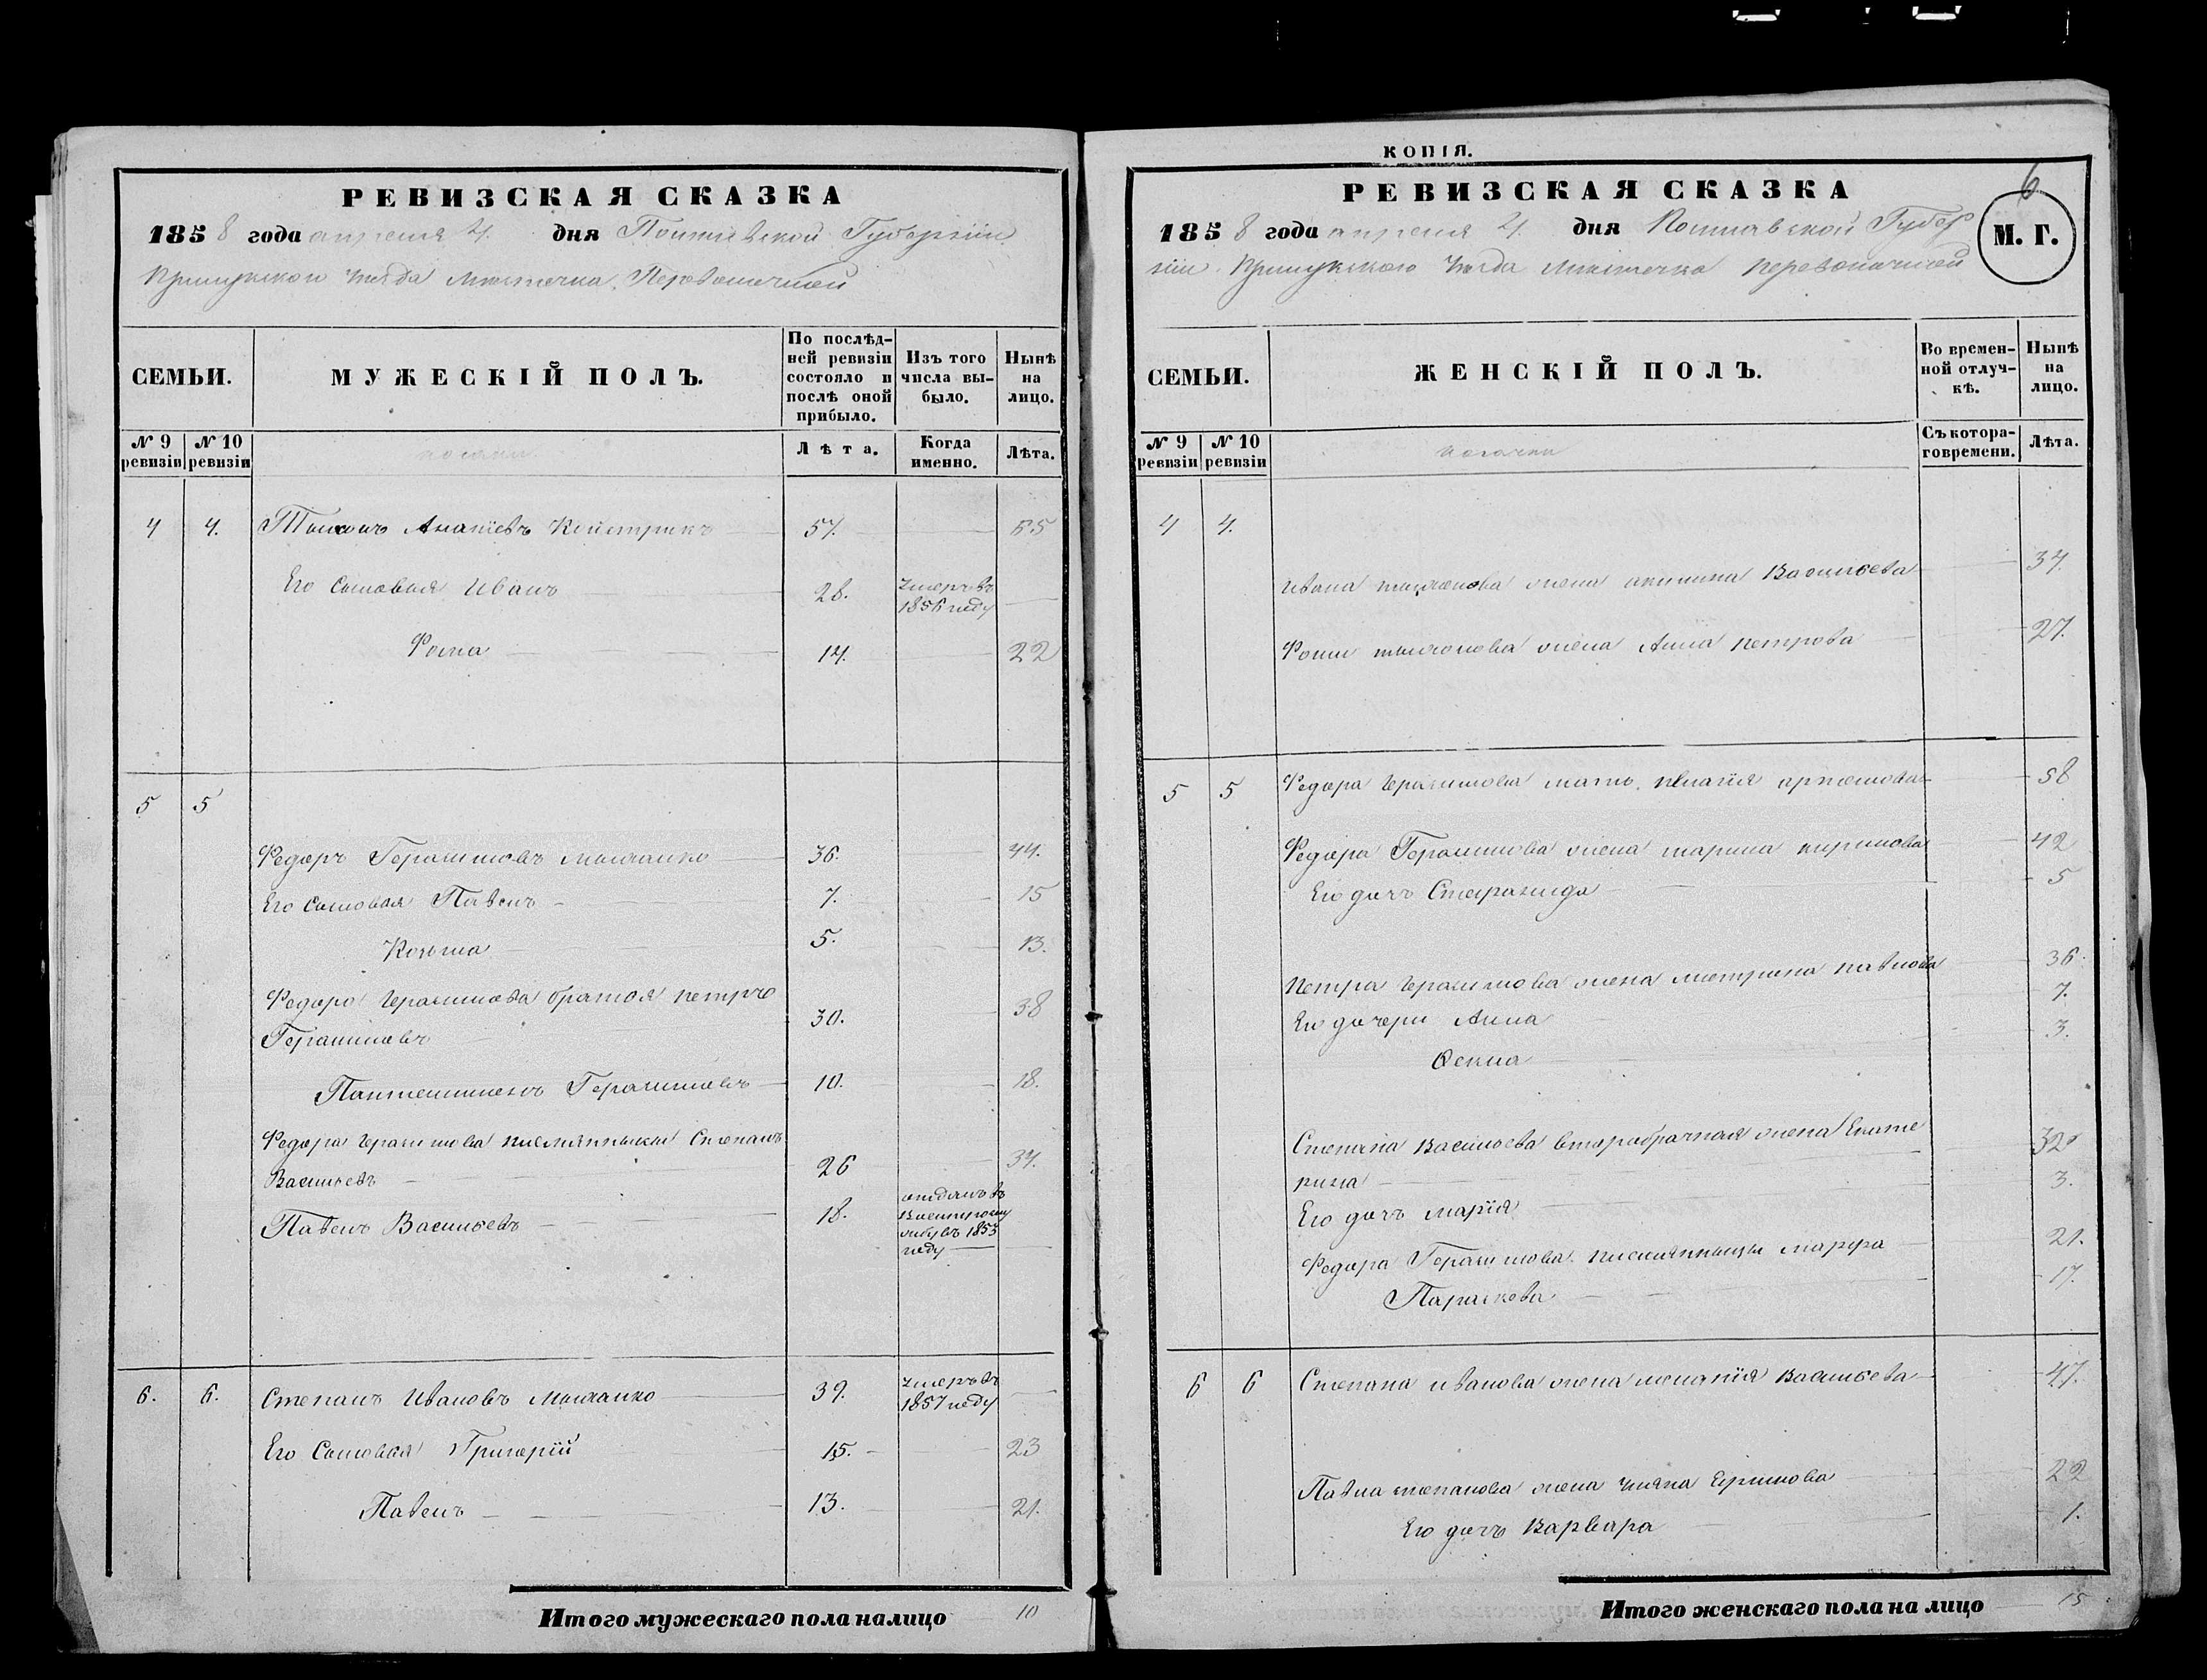 РЕВИЗСКАЯ СКАЗКА
1858 года апреля 4. дня Полтавской Губернiи
Прилукского уезда Местечка Переволочной
СЕМЬИ.
МУЖЕСКIЙ ПОЛЪ.
По послѣд-
ней ревизiи
состояло и
послѣ оной
прибыло.
Изъ того
числа вы-
было.
Нынѣ
на
лицо.
№ 9
ревизiи
№ 10
ревизiи
козаки
Лѣта.
Когда
именно.
Лѣта.
4 4. Тихонъ Ананiевъ 57. 65
Его Сыновья Иванъ 28. умеръ въ
1856 году
Фома 14. 22
5 5
Федоръ Герасимовъ 36. 44.
Его Сыновья Павелъ 7. 15
Козьма 5. 13.
Федора Герасимова братья петръ
Герасимовъ 30. 38
Пантелимонъ Герасимовъ 10. 18.
Федора Герасимова племянники Степанъ
Васильевъ 26 34.
Павелъ Васильевъ 18. отданъ въ
1853
году
6. 6. Степанъ Ивановъ 39. умеръ въ
1857 году
Его Сыновья Григорiй 15. 23
Павелъ 13. 21.
Итого мужескаго пола налицо 10
КОПIЯ.
6
РЕВИЗСКАЯ СКАЗКА
М. Г.
1858 года апреля 4. дня Полтавской Губер
нiи Прилукского уезда Местечка переволочной
СЕМЬИ.
ЖЕНСКIЙ ПОЛЪ.
Во времен-
ной отлуч-
кѣ.
Нынѣ
на
лицо.
№ 9
ревизiи
№ 10
ревизiи
козачки
Съ котора-
го времени.
Лѣта.
4 4.
Ивана тихонова жена акилина Васильева 34.
Фомы тихонова жена Анна петрова 27.
5 5 Федора Герасимова мать пелагiя артемова 58
Федора Герасимова жена марина кирилова 42
Его дочь 5
Петра Герасимова жена павлова 36
Его дочери Анна 7.
Фекла 3.
Степана Васильева второбрачная жена Екате
рина 32
Его дочь марiя 3.
Федора Герасимова племянницы марфа 21.
Параскова 17.
6 6 Степана иванова жена меланiя Васильева 47.
Павла степанова жена 22
Его дочь Варвара 1.
Итого женскаго пола на лицо 15